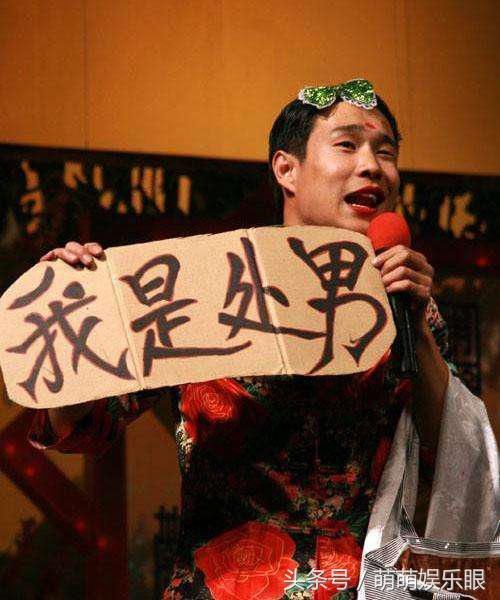 我是处男
头条号／萌萌娱乐眼